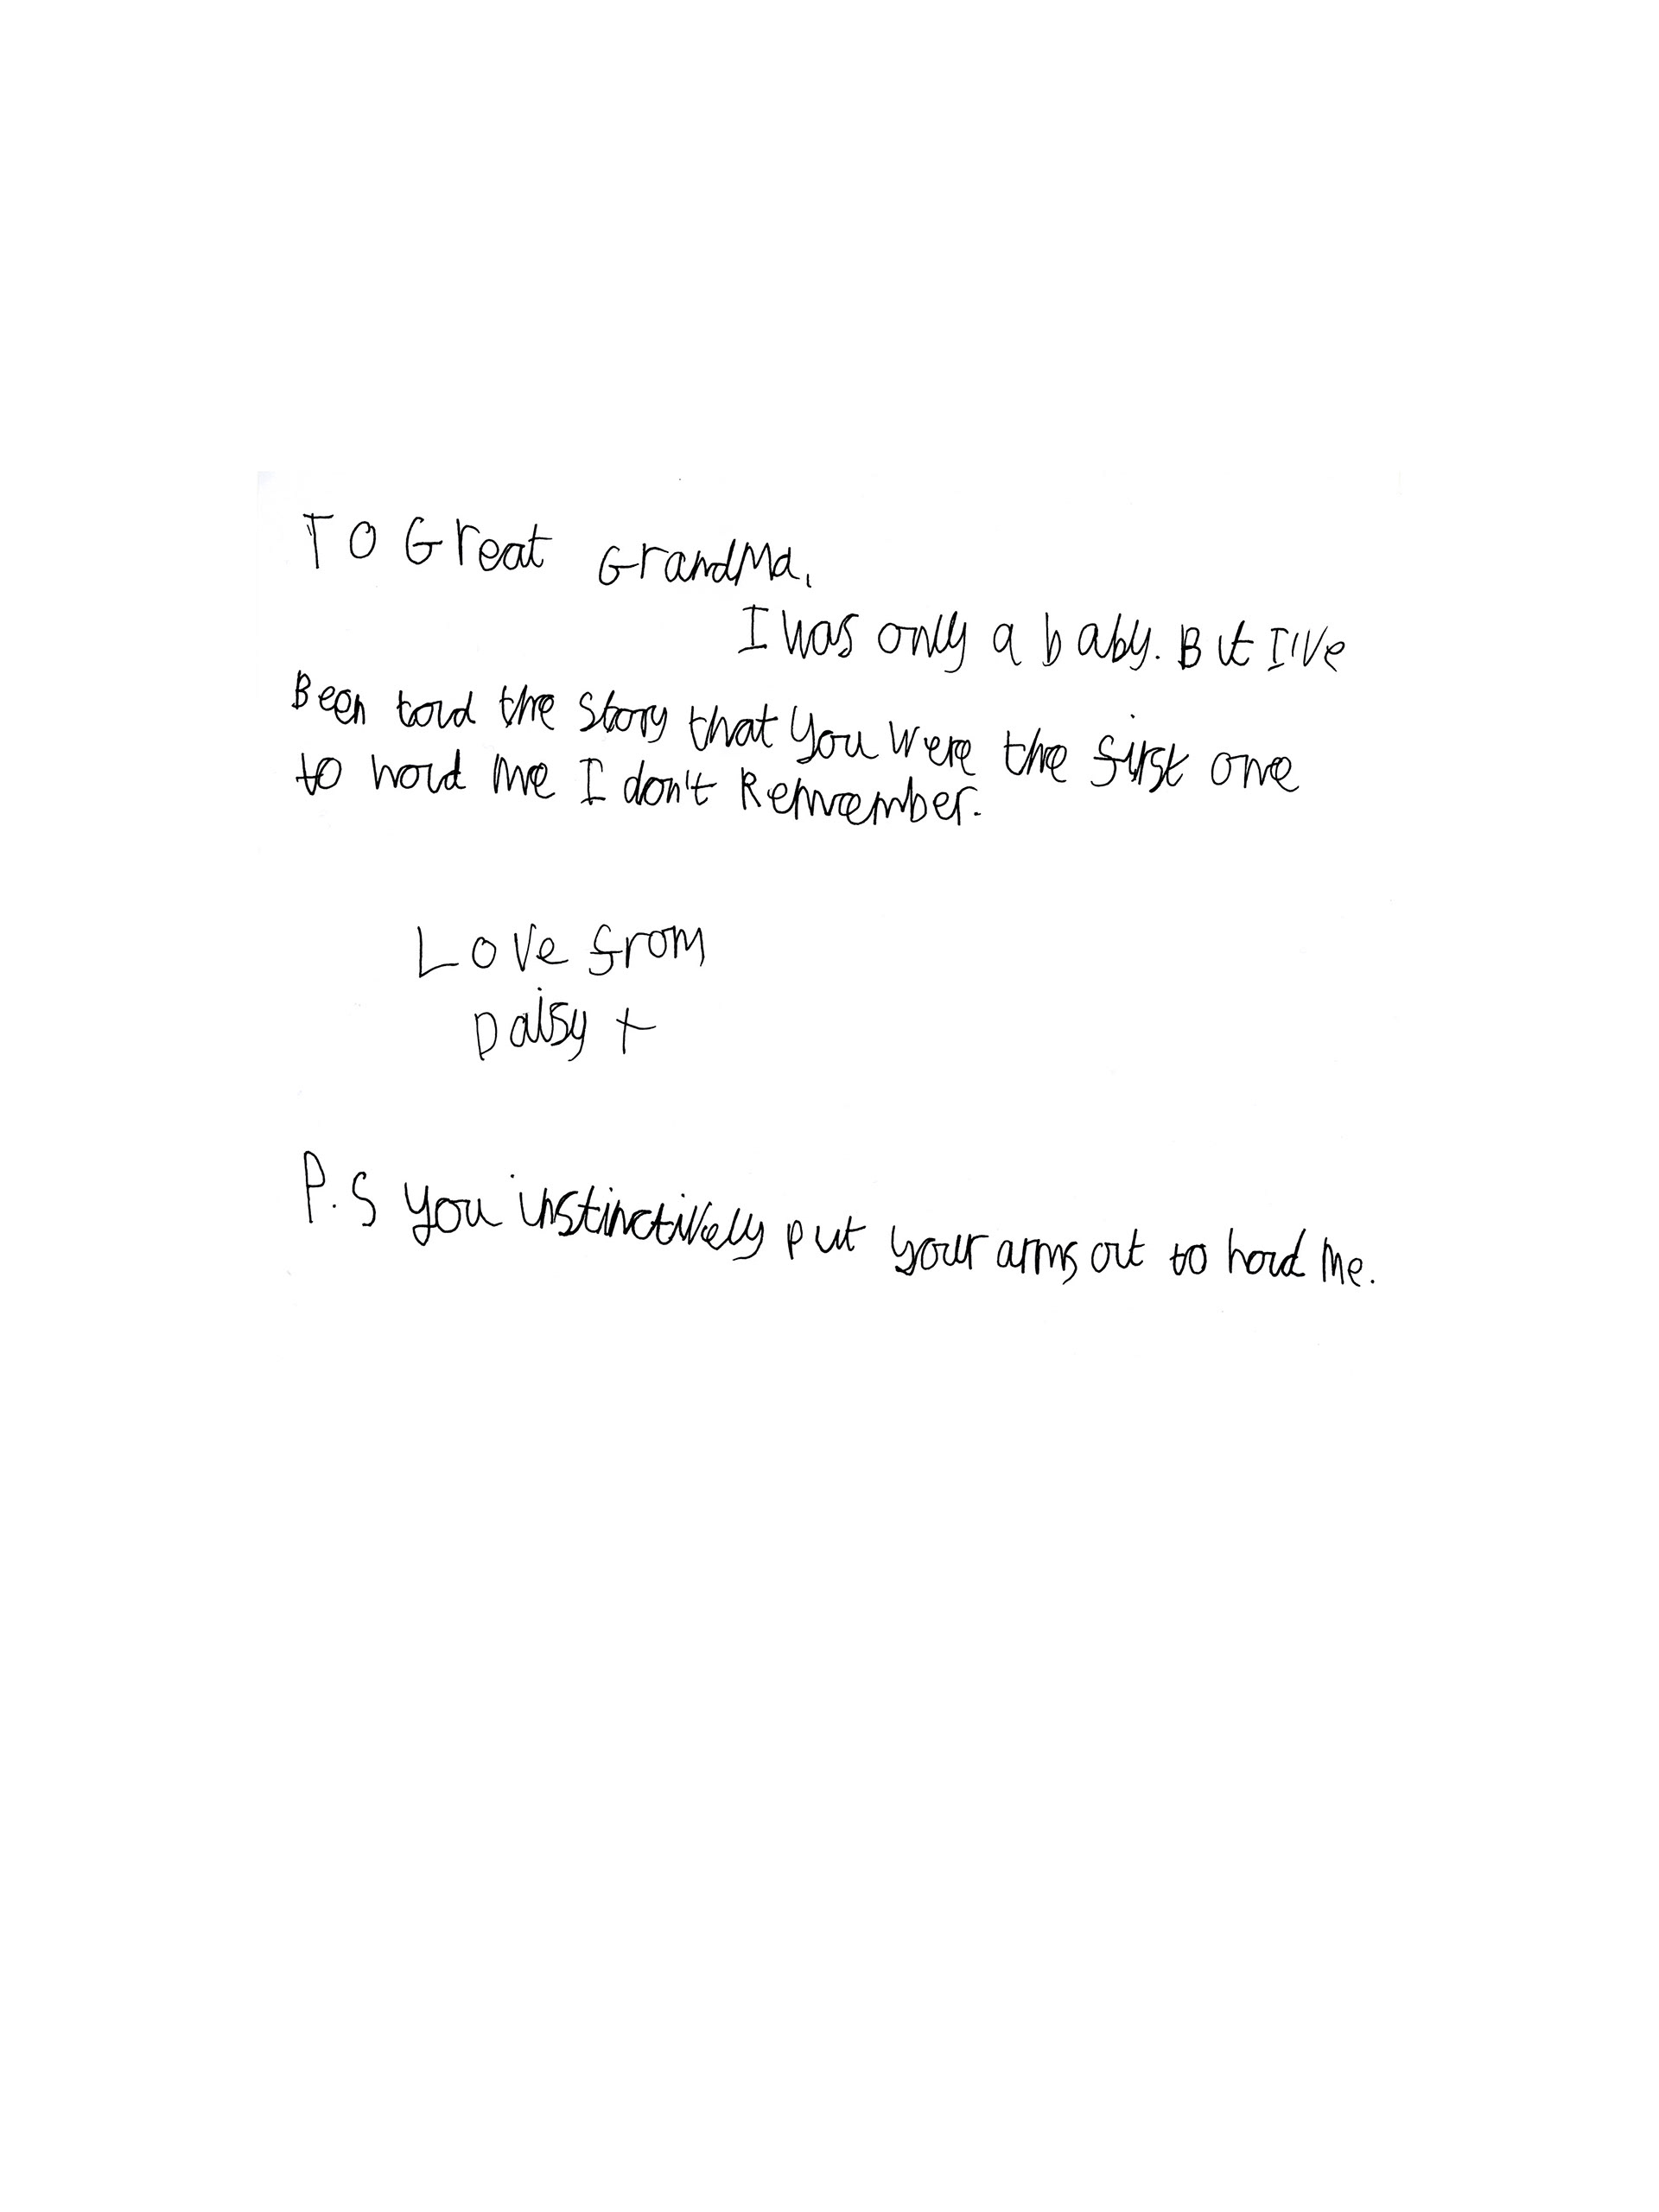 To Great Grandma,
I was only a baby. But I've
Been told the story that you were the first one
to hold me I don't Remember.
Love from
Daisy +
P.S you instinctively put your arms out to hold me.